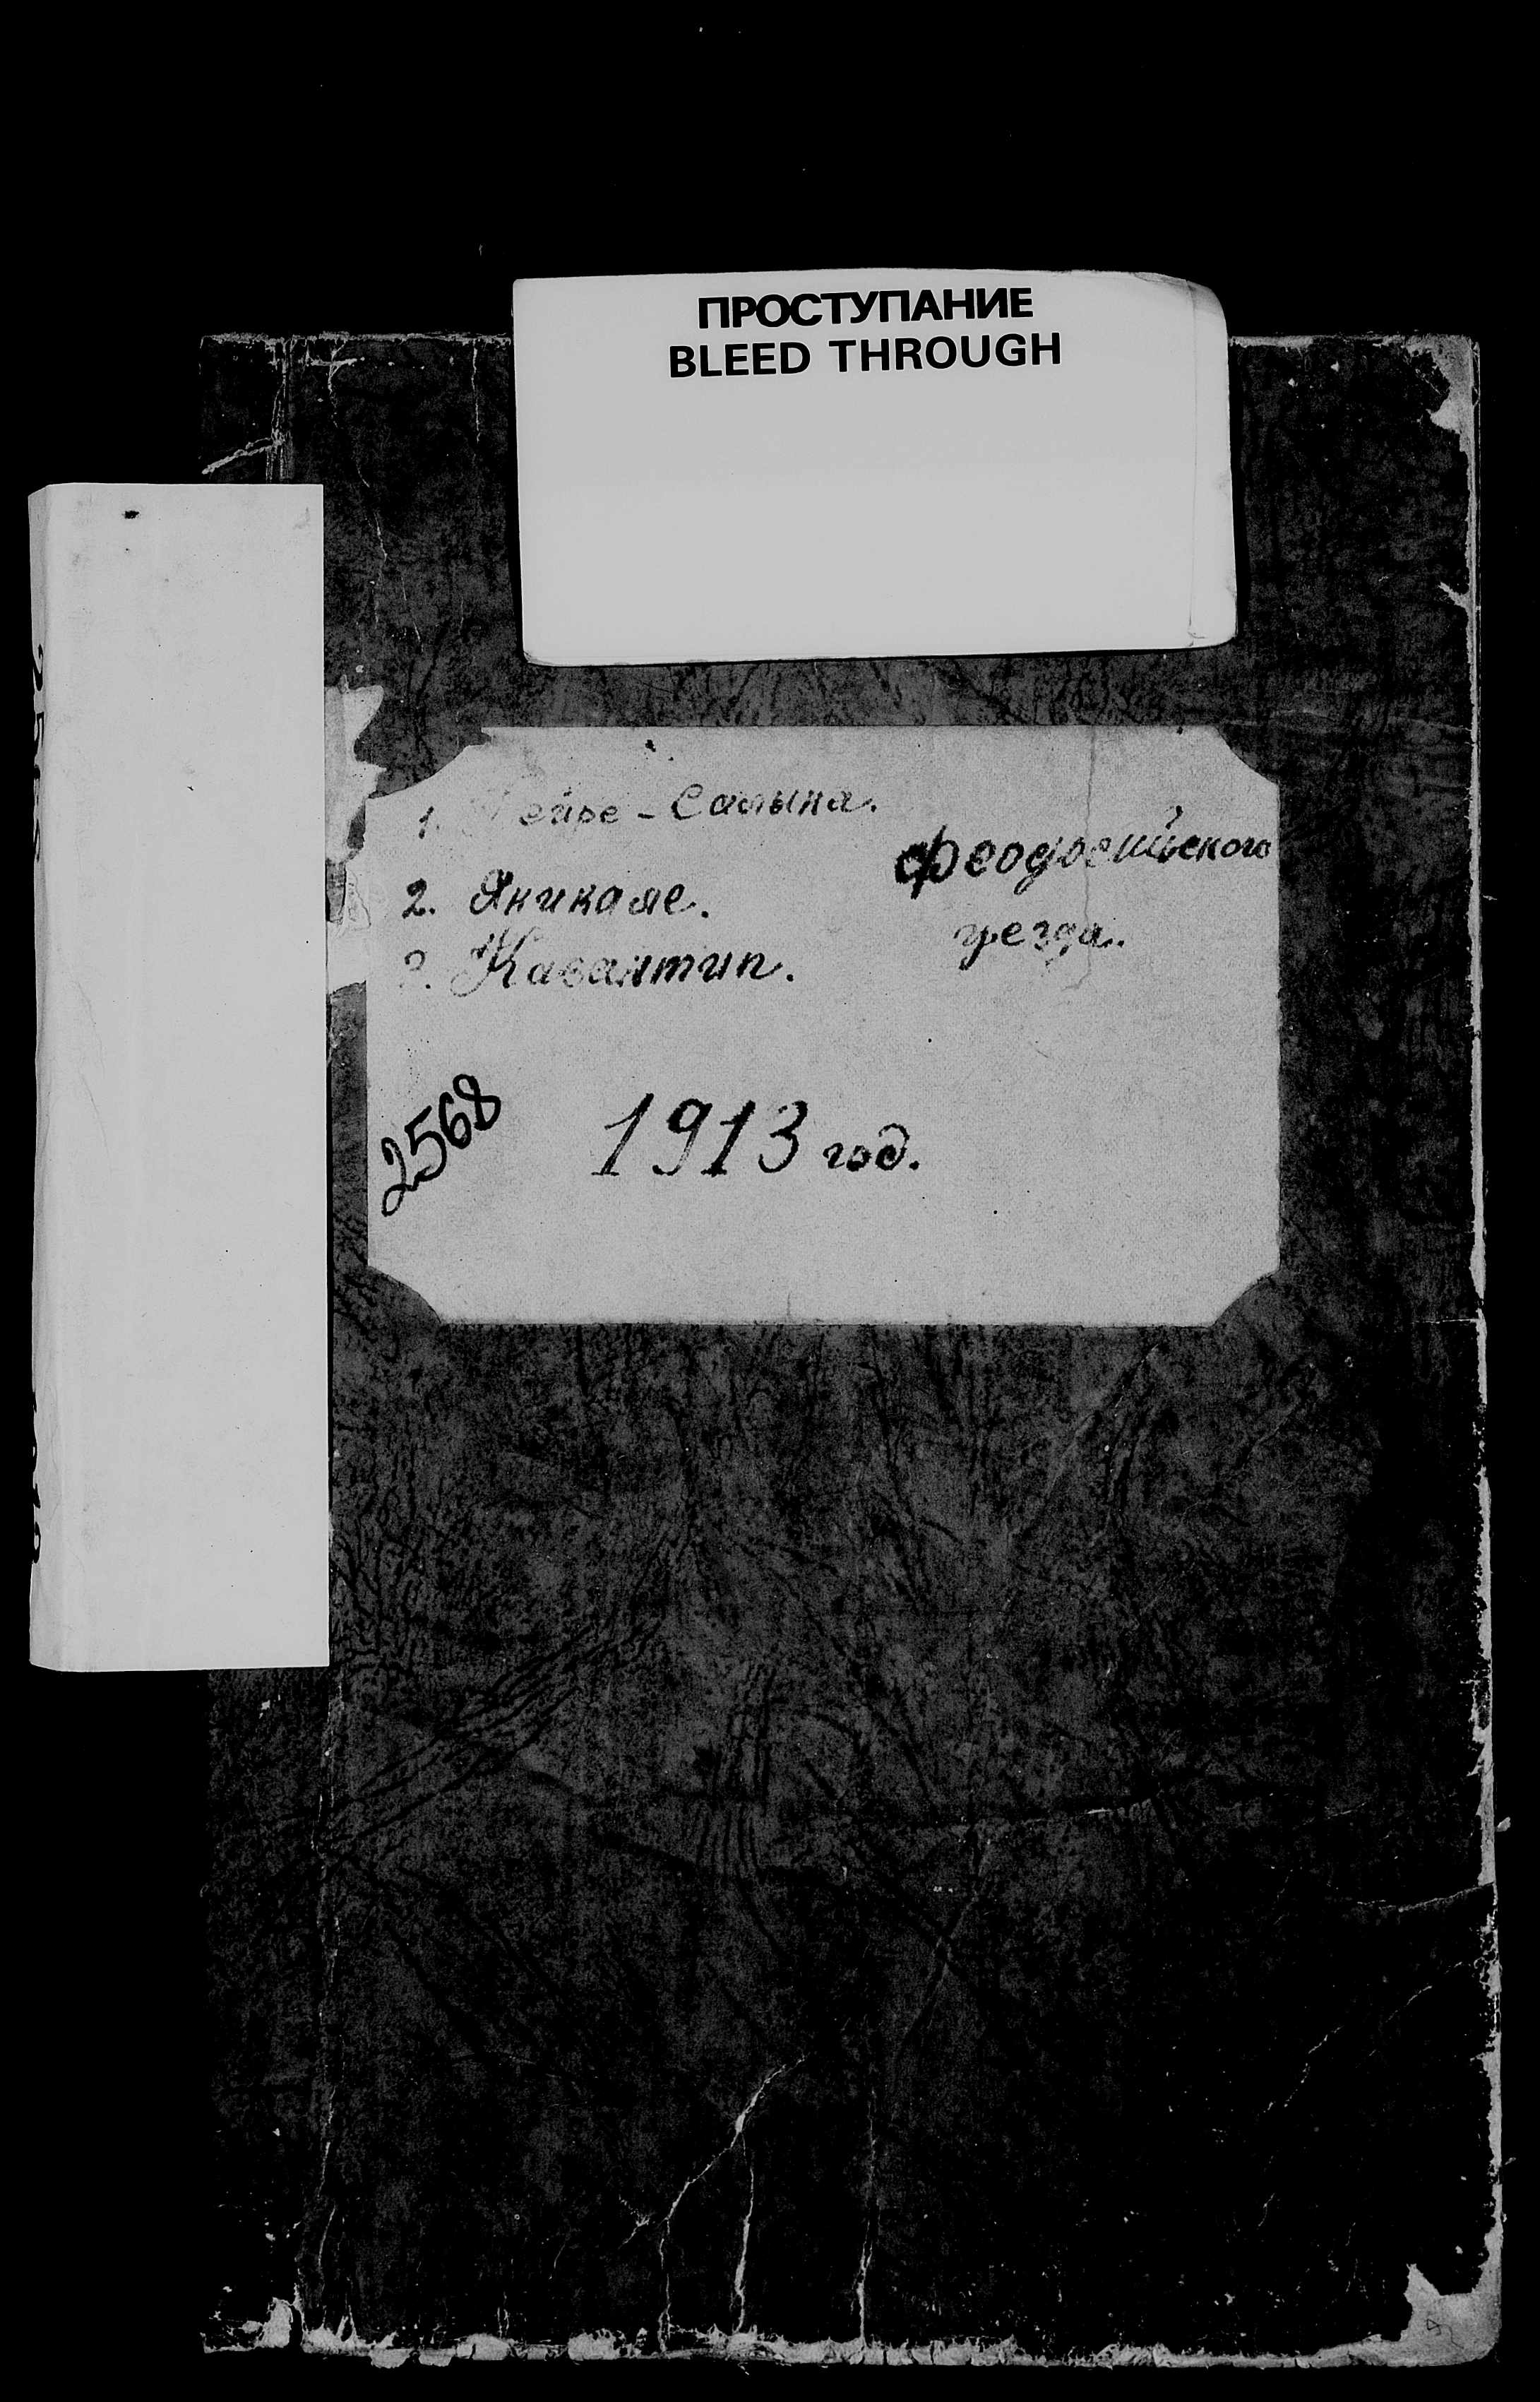 ПРОСТУПАНИЕ
BLEED THROUGH
1. Сейре-Салына.
2. Яникале.
3. Кавантип.
Феодосийского
уезда.
2568
1913 год.